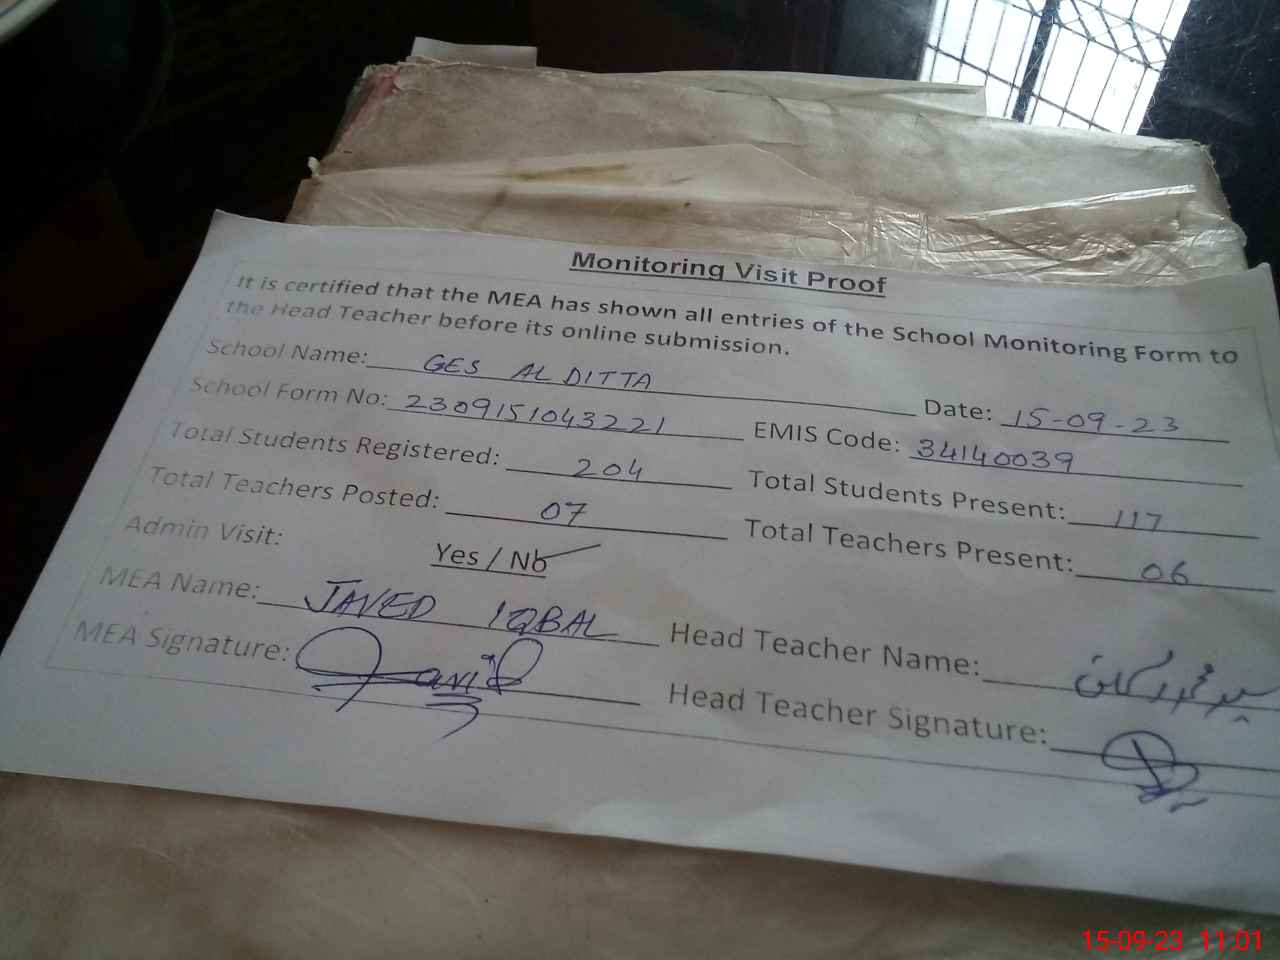 Monitoring Visit Proof
It is certified that the MEA has shown all entries of the School Monitoring Form to
the Head Teacher before its online submission.
School Name: GES AL DITTA Date: 15-09-23
School Form No: 2309151043221 EMIS Code: 34140039
Total Students Registered: 204 Total Students Present: 117
Total Teachers Posted: 07 Total Teachers Present: 06
Admin Visit: Yes / No
MEA Name: JAVED IQBAL Head Teacher Name:
MEA Signature: Head Teacher Signature:
15-09-23 11:01